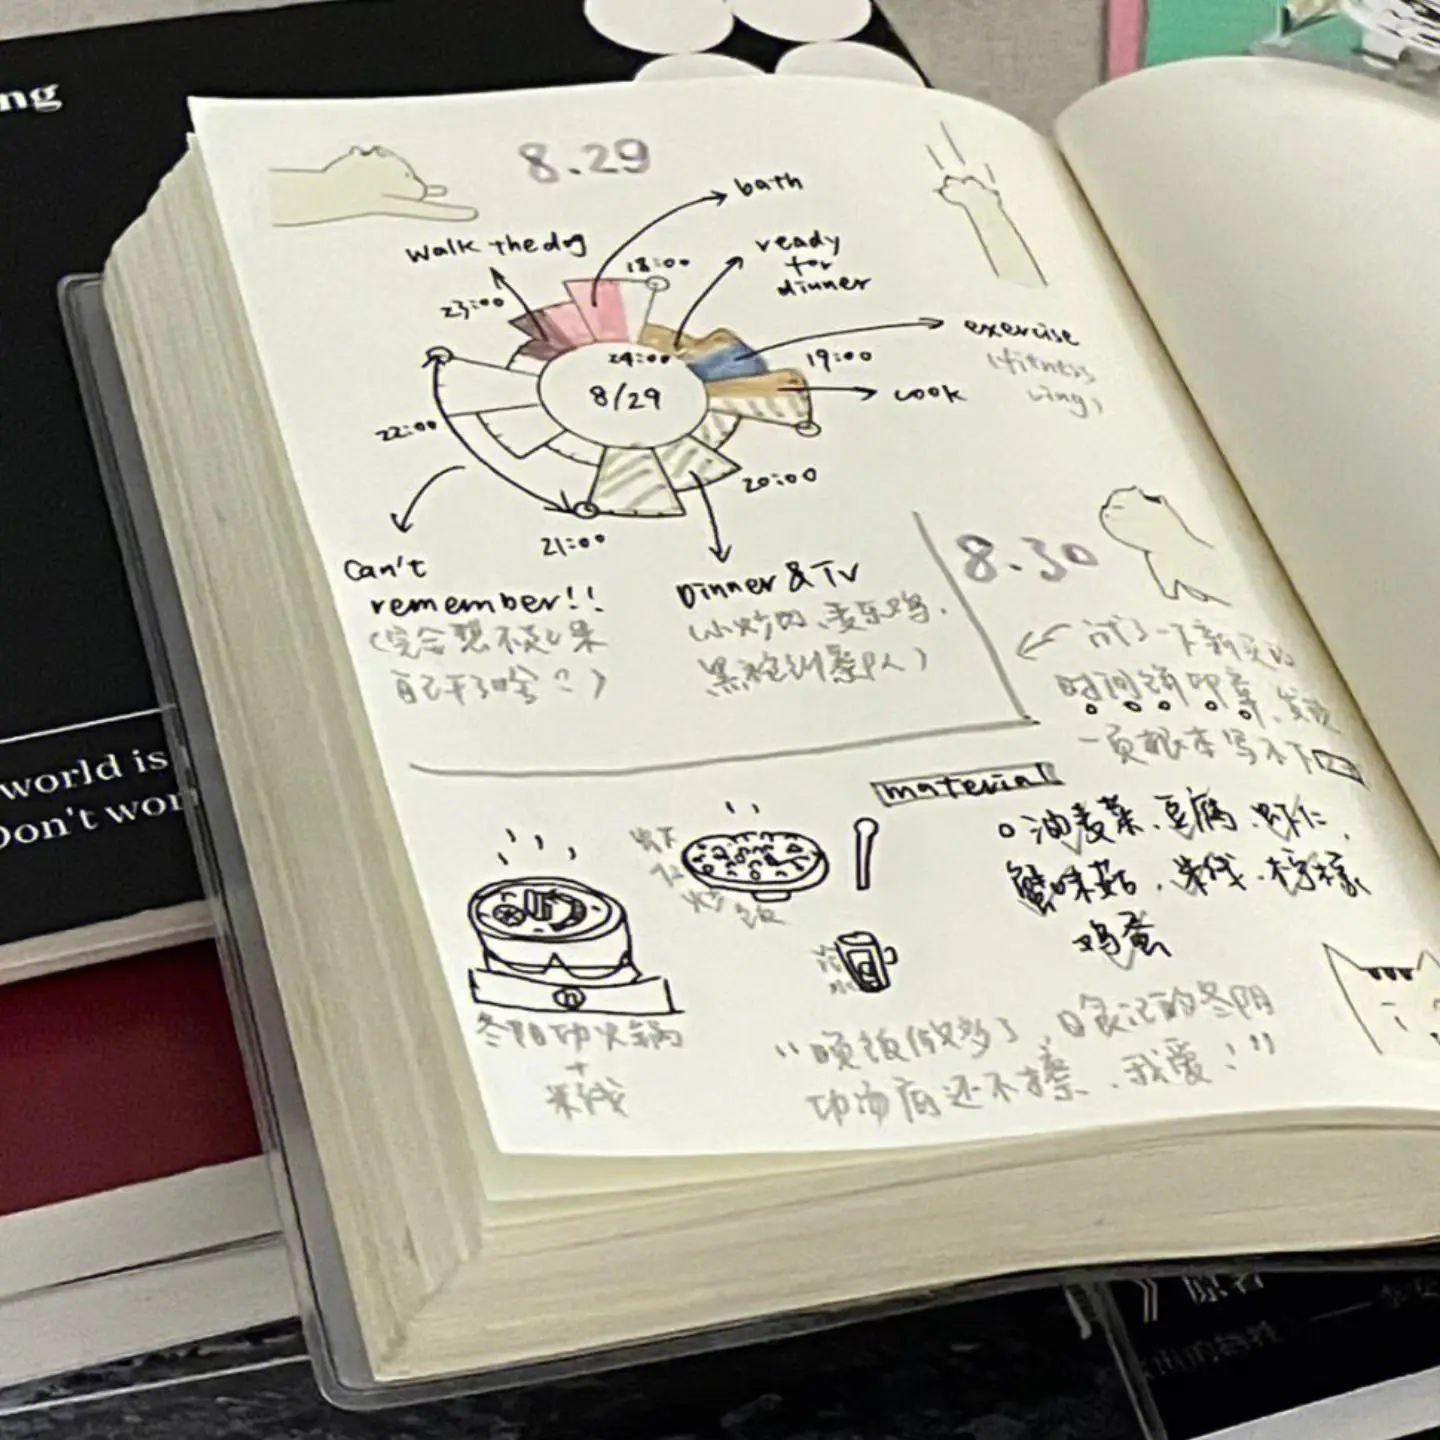 ng
world is
Don't wor
8.29
bath
walk the dog
ready
for
dinner
18:00
23:00
24:00
19:00
exercise
(fitness
ring)
8/29
cook
22:00
20:00
21:00
Can't
remember!!
(完全想不起来
自己干了啥?)
Dinner & TV
(小炒肉、麦乐鸡、
黑袍纠察队)
8.30
试了一下新买的
时间轴印章,发现
一页根本写不下
material
油麦菜、豆腐、虾仁、
蟹味菇、米线、柠檬
鸡蛋
虾仁炒饭
冰水
冬阴功火锅
+
米线
"晚饭做多了,日食记的冬阴
功汤底还不错,我爱!"